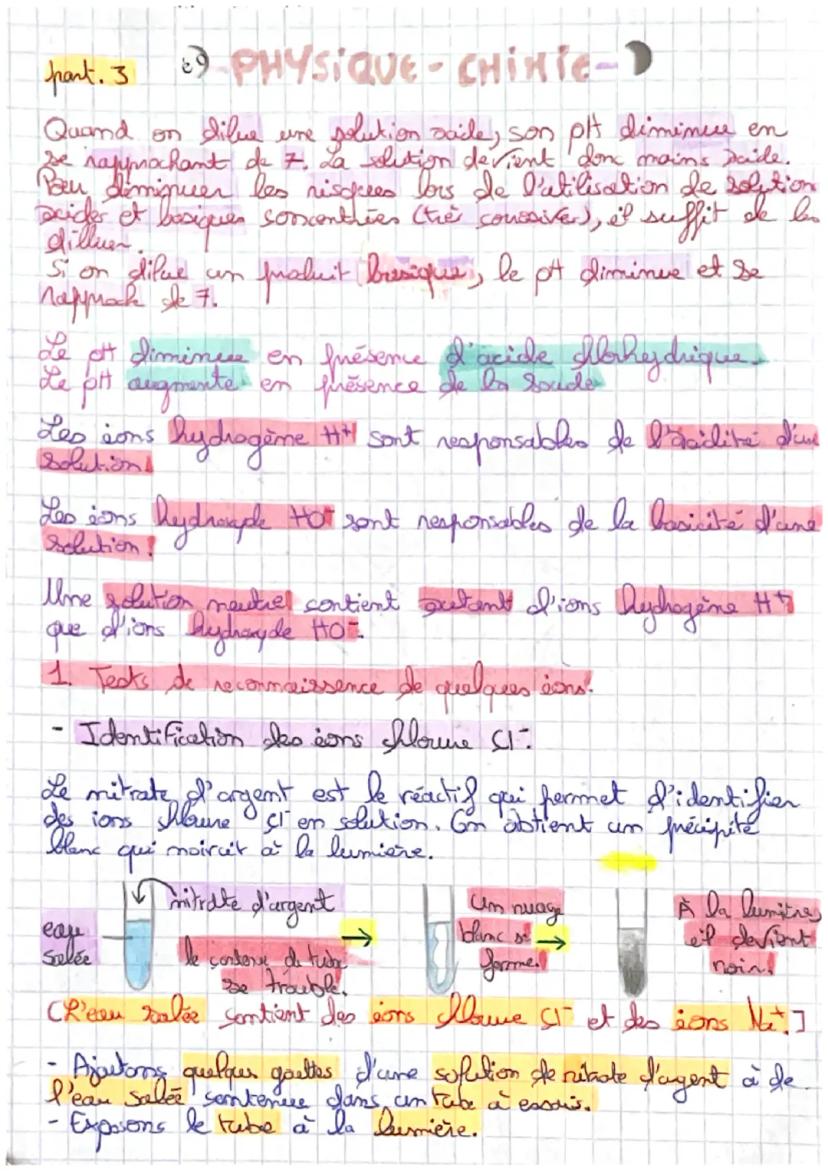 part. 3
PHYSiQUE - CHiMiE -
Quand on dilue une solution acide, son pH diminue en
se rapprochant de 7. La solution devient donc moins acide.
Pour diminuer les risques lors de l'utilisation de solution
acides et basiques concentrées (très corrosives), il suffit de les
diluer.
Si on dilue un produit basique, le pH diminue et se
rapproch de 7.
Le pH diminue en présence d'acide chlorhydrique.
Le pH augmente en présence de la soude
Les ions hydrogène H+ sont responsables de l'acidité d'une
solution!
Les ions hydroxyde HO- sont responsables de la basicité d'une
solution!
Une solution neutre contient autant d'ions hydrogène H+
que d'ions hydroxyde HO-.
1. Tests de reconnaissence de quelques ions.
- Identification des ions chlorure Cl-.
Le nitrate d'argent est le réactif qui permet d'identifier
des ions chlorure Cl- en solution. On obtient un précipité
blanc qui noircit à la lumière.
nitrate d'argent
eau
salée
le contenu du tube
se trouble.
→
Un nuage
blanc se
forme.
→
À la lumière,
il devient
noir.
(L'eau salée contient des ions chlorure Cl- et des ions Na+.]
- Ajoutons quelques gouttes d'une solution de nitrate d'argent à de
l'eau salée contenue dans un tube à essais.
- Exposons le tube à la lumière.